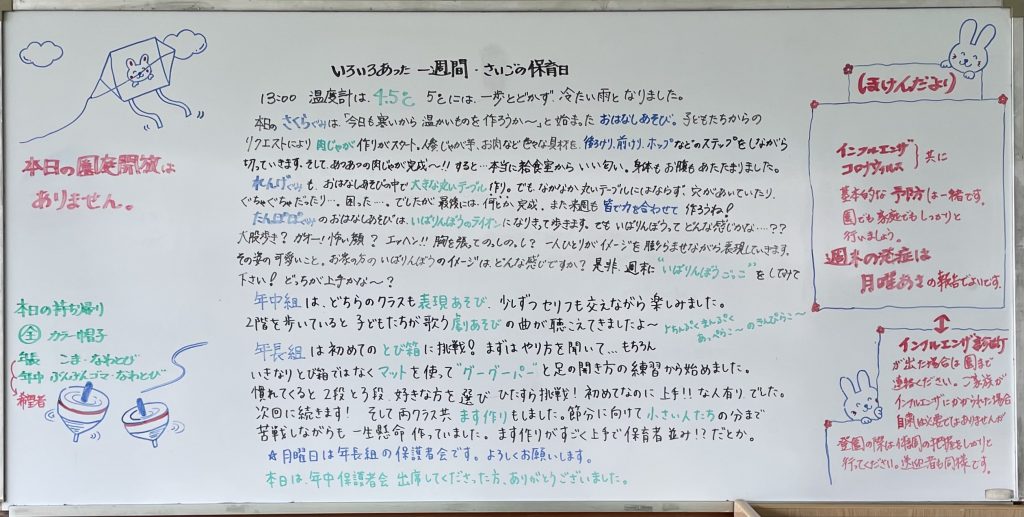 いろいろあった 一週間・さいごの保育日
13:00 温度計は、4.5℃ 5℃には、一歩とどかず、冷たい雨となりました。
本日の さくらぐみは、「今日も寒いから 温かいものを 作ろうか〜」と始まった おはなしあそび。子どもたちからの
リクエストにより 肉じゃが 作りがスタート。人参、じゃが芋、お肉など色々な具材を、後ろけり、前けり、ホップなどのステップをしながら
切っていきます。そして、あつあつの肉じゃが完成〜!! すると…本当に給食室から いい匂い。身体もお腹も あたたまりました。
れんげぐみも、おはなしあそびの中で 大きな丸いテーブル作り。でも、なかなか 丸いテーブルにはならず、穴があいていたり、
ぐちゃぐちゃだったり…。困った…。でしたが 最後には、何とか、完成。また来週も 皆で力を合わせて 作ろうね!
たんぽぽぐみ のおはなしあそびは、いばりんぼうのライオン になりきって歩きます。でも いばりんぼうって どんな感じかな…??
大股歩き? ガオー! 怖い顔? エッヘン!! 胸を張って のっしのっし? 一人ひとりがイメージを 膨らませながら 表現していきます。
その姿の可愛いこと。お家の方の いばりんぼうのイメージは、どんな感じですか? 是非、週末に "いばりんぼうごっこ" をしてみて
下さい! どっちが上手かな〜?
年中組は、どちらのクラスも表現あそび、少しずつセリフも交えながら 楽しみました。
2階を歩いていると 子どもたちが歌う 劇あそび の曲が 聴こえてきましたよ〜
年長組は初めての とび箱に挑戦! まずは やり方を聞いて… もちろん
いきなりとび箱ではなく マットを使って"グーグーパー"と足の開き方の練習から始めました。
慣れてくると 2段と3段、好きな方を 選び ひたすら挑戦! 初めてなのに 上手!! な人有り、でした。
次回に続きます! そして 両クラス共 ます作りもしました。節分に向けて 小さい人たちの分まで
苦戦しながらも 一生懸命 作っていました。ます作りがすごく上手で保育者並み!? だとか。
☆月曜日は年長組の保護者会です。よろしくお願いします。
本日は、年中保護者会 出席してくださった方、ありがとうございました。
本日の園庭開放は
ありません。
本日の持ち帰り
全 カラー帽子
年長 こま・なわとび
年中 ぶんぶんゴマ・なわとび
希望者
ほけんだより
インフルエンザ
コロナウィルス 共に
基本的な 予防方は一緒です。
園でも 家庭でも しっかりと
行いましょう。
週末の発症は
月曜あさの報告でよいです。
インフルエンザ
が出た場合は園まで
連絡ください。ご家族が
インフルエンザにかかられた場合
自粛は必要ではありませんが
登園の際は体調の把握をしっかりと
行ってください。送迎者も同様です。